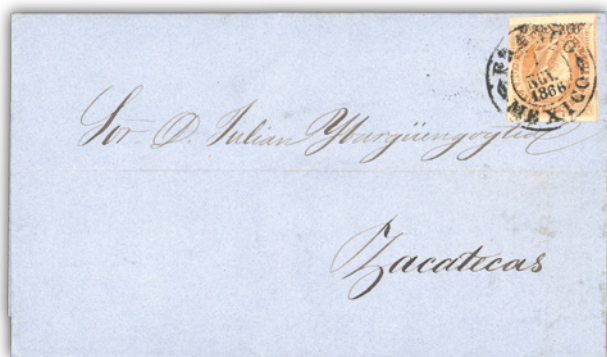 FRANCO
NOV.
1866
MEXICO
Sor. D. Julian Ybargüengoytia
Zacatecas